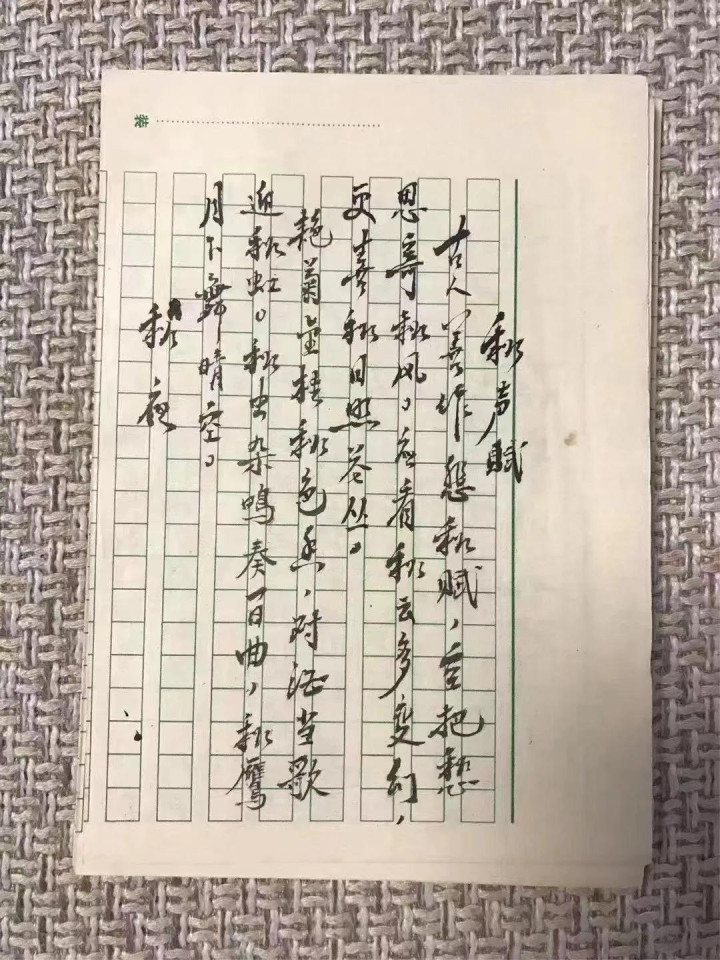 装
秋声赋
古人善作愁秋赋，言把愁
思寄秋风。应看秋云多变幻，
更喜秋日照谷丛。
艳菊金桂秋色里，对酒当歌
迎秋虹。秋虫杂鸣奏百曲，秋鹰
月下舞晴空。
秋夜